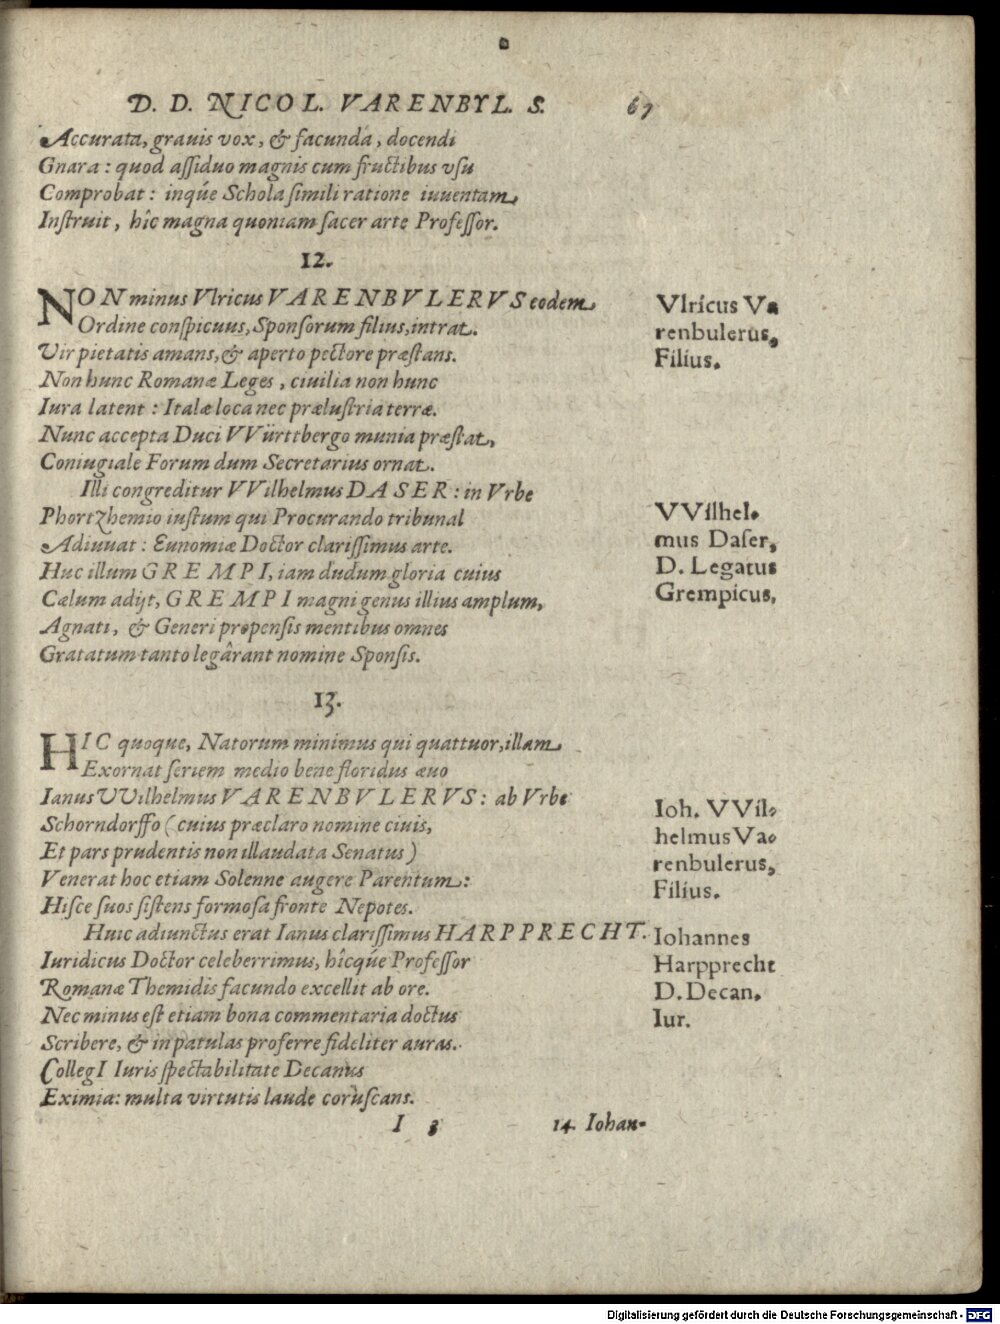 D. D. NICOL. VARENBYL. S. 67
Accurata, grauis vox, & facunda, docendi
Gnara: quod aſſiduo magnis cum fructibus vſu
Comprobat: inq́ue Schola ſimili ratione iuuentam
Inſtruit, hîc magna quoniam ſacer arte Profeſſor.
12.
NON minus Vlricus VARENBVLERVS eodem
Ordine conſpicuus, Sponſorum filius, intrat.
Vir pietatis amans, & aperto pectore præſtans.
Non hunc Romanæ Leges, ciuilia non hunc
Iura latent: Italæ loca nec præluſtria terræ.
Nunc accepta Duci VVürttbergo munia præſtat,
Coniugiale Forum dum Secretarius ornat.
Vlricus Va
renbulerus,
Filius.
Illi congreditur VVilhelmus DASER: in Vrbe
Phortzhemio iuſtum qui Procurando tribunal
Adiuuat: Eunomiæ Doctor clariſſimus arte.
Huc illum GREMPI, iam dudum gloria cuius
Cælum adijt, GREMPI magni genus illius amplum,
Agnati, & Generi propenſis mentibus omnes
Gratatum tanto legârant nomine Sponſis.
VVilhel-
mus Daſer,
D. Legatus
Grempicus,
13.
HIC quoque, Natorum minimus qui quattuor, illam
Exornat ſeriem medio bene floridus æuo
Ianus VVilhelmus VARENBVLERVS: ab Vrbe
Schorndorffo (cuius præclaro nomine ciuis,
Et pars prudentis non illaudata Senatus)
Venerat hoc etiam Solenne augere Parentum:
Hiſce ſuos ſiſtens formoſa fronte Nepotes.
Ioh. VVil-
helmus Va-
renbulerus,
Filius.
Huic adiunctus erat Ianus clariſſimus HARPPRECHT.
Iuridicus Doctor celeberrimus, hîcq́ue Profeſſor
Romanæ Themidis facundo excellit ab ore.
Nec minus eſt etiam bona commentaria doctus
Scribere, & in patulas proferre fideliter auras.
CollegI Iuris ſpectabilitate Decanus
Eximia: multa virtutis laude coruſcans.
Iohannes
Harpprecht
D. Decan.
Iur.
I 3 14. Iohan-
Digitalisierung gefördert durch die Deutsche Forschungsgemeinschaft - DFG